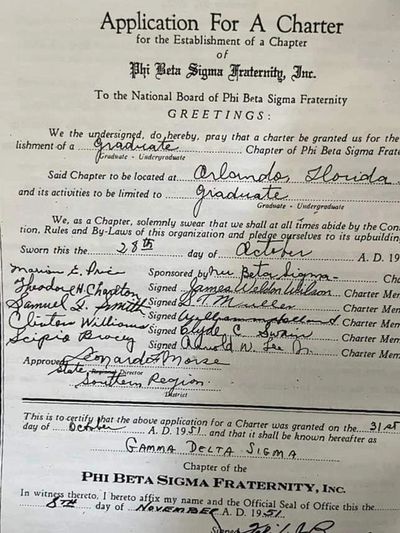 Application For A Charter
for the Establishment of a Chapter
of
Phi Beta Sigma Fraternity, Inc.
To the National Board of Phi Beta Sigma Fraternity
GREETINGS:
We the undersigned, do hereby, pray that a charter be granted us for the
lishment of a Graduate Chapter of Phi Beta Sigma Frate
Graduate - Undergraduate
Said Chapter to be located at Orlando, Florida
and its activities to be limited to graduate
Graduate - Undergraduate
We, as a Chapter, solemnly swear that we shall at all times abide by the Con
tion, Rules and By-Laws of this organization and pledge ourselves to its upbuilding
Sworn this the 28th day of October A. D. 19
Marion E. Price Sponsored by Nu Beta Sigma Cha
Theodore H. Charlton Signed James Weldon Wilson Charter Mem
Samuel I. Smith Signed S. T. Muller Charter Mem
Clinton Williams Signed Charter Mem
Scipio Bracey Signed Clyde C. Charter Mem
Signed Arnold W. Lee Jr. Charter Mem
Approved Leonard F. Morse
State Director
Southern Region
District
This is to certify that the above application for a Charter was granted on the 31st
day of October A. D. 1951 and that it shall be known hereafter as
GAMMA DELTA SIGMA
Chapter of the
PHI BETA SIGMA FRATERNITY, INC.
In witness thereto, I hereto affix my name and the Official Seal of Office this the
8TH day of NOVEMBER A. D. 1951.
Signed